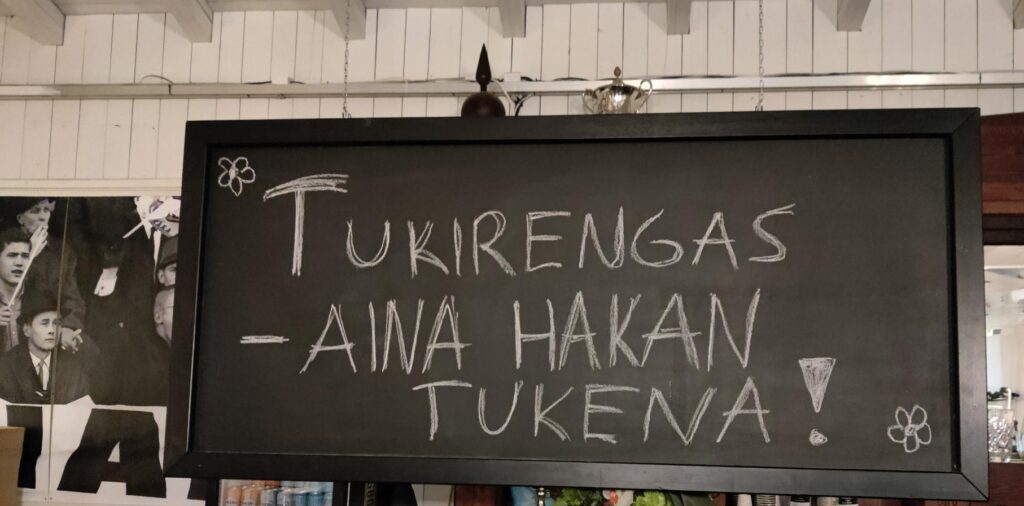 TUKIRENGAS
- AINA HAKAN
TUKENA!